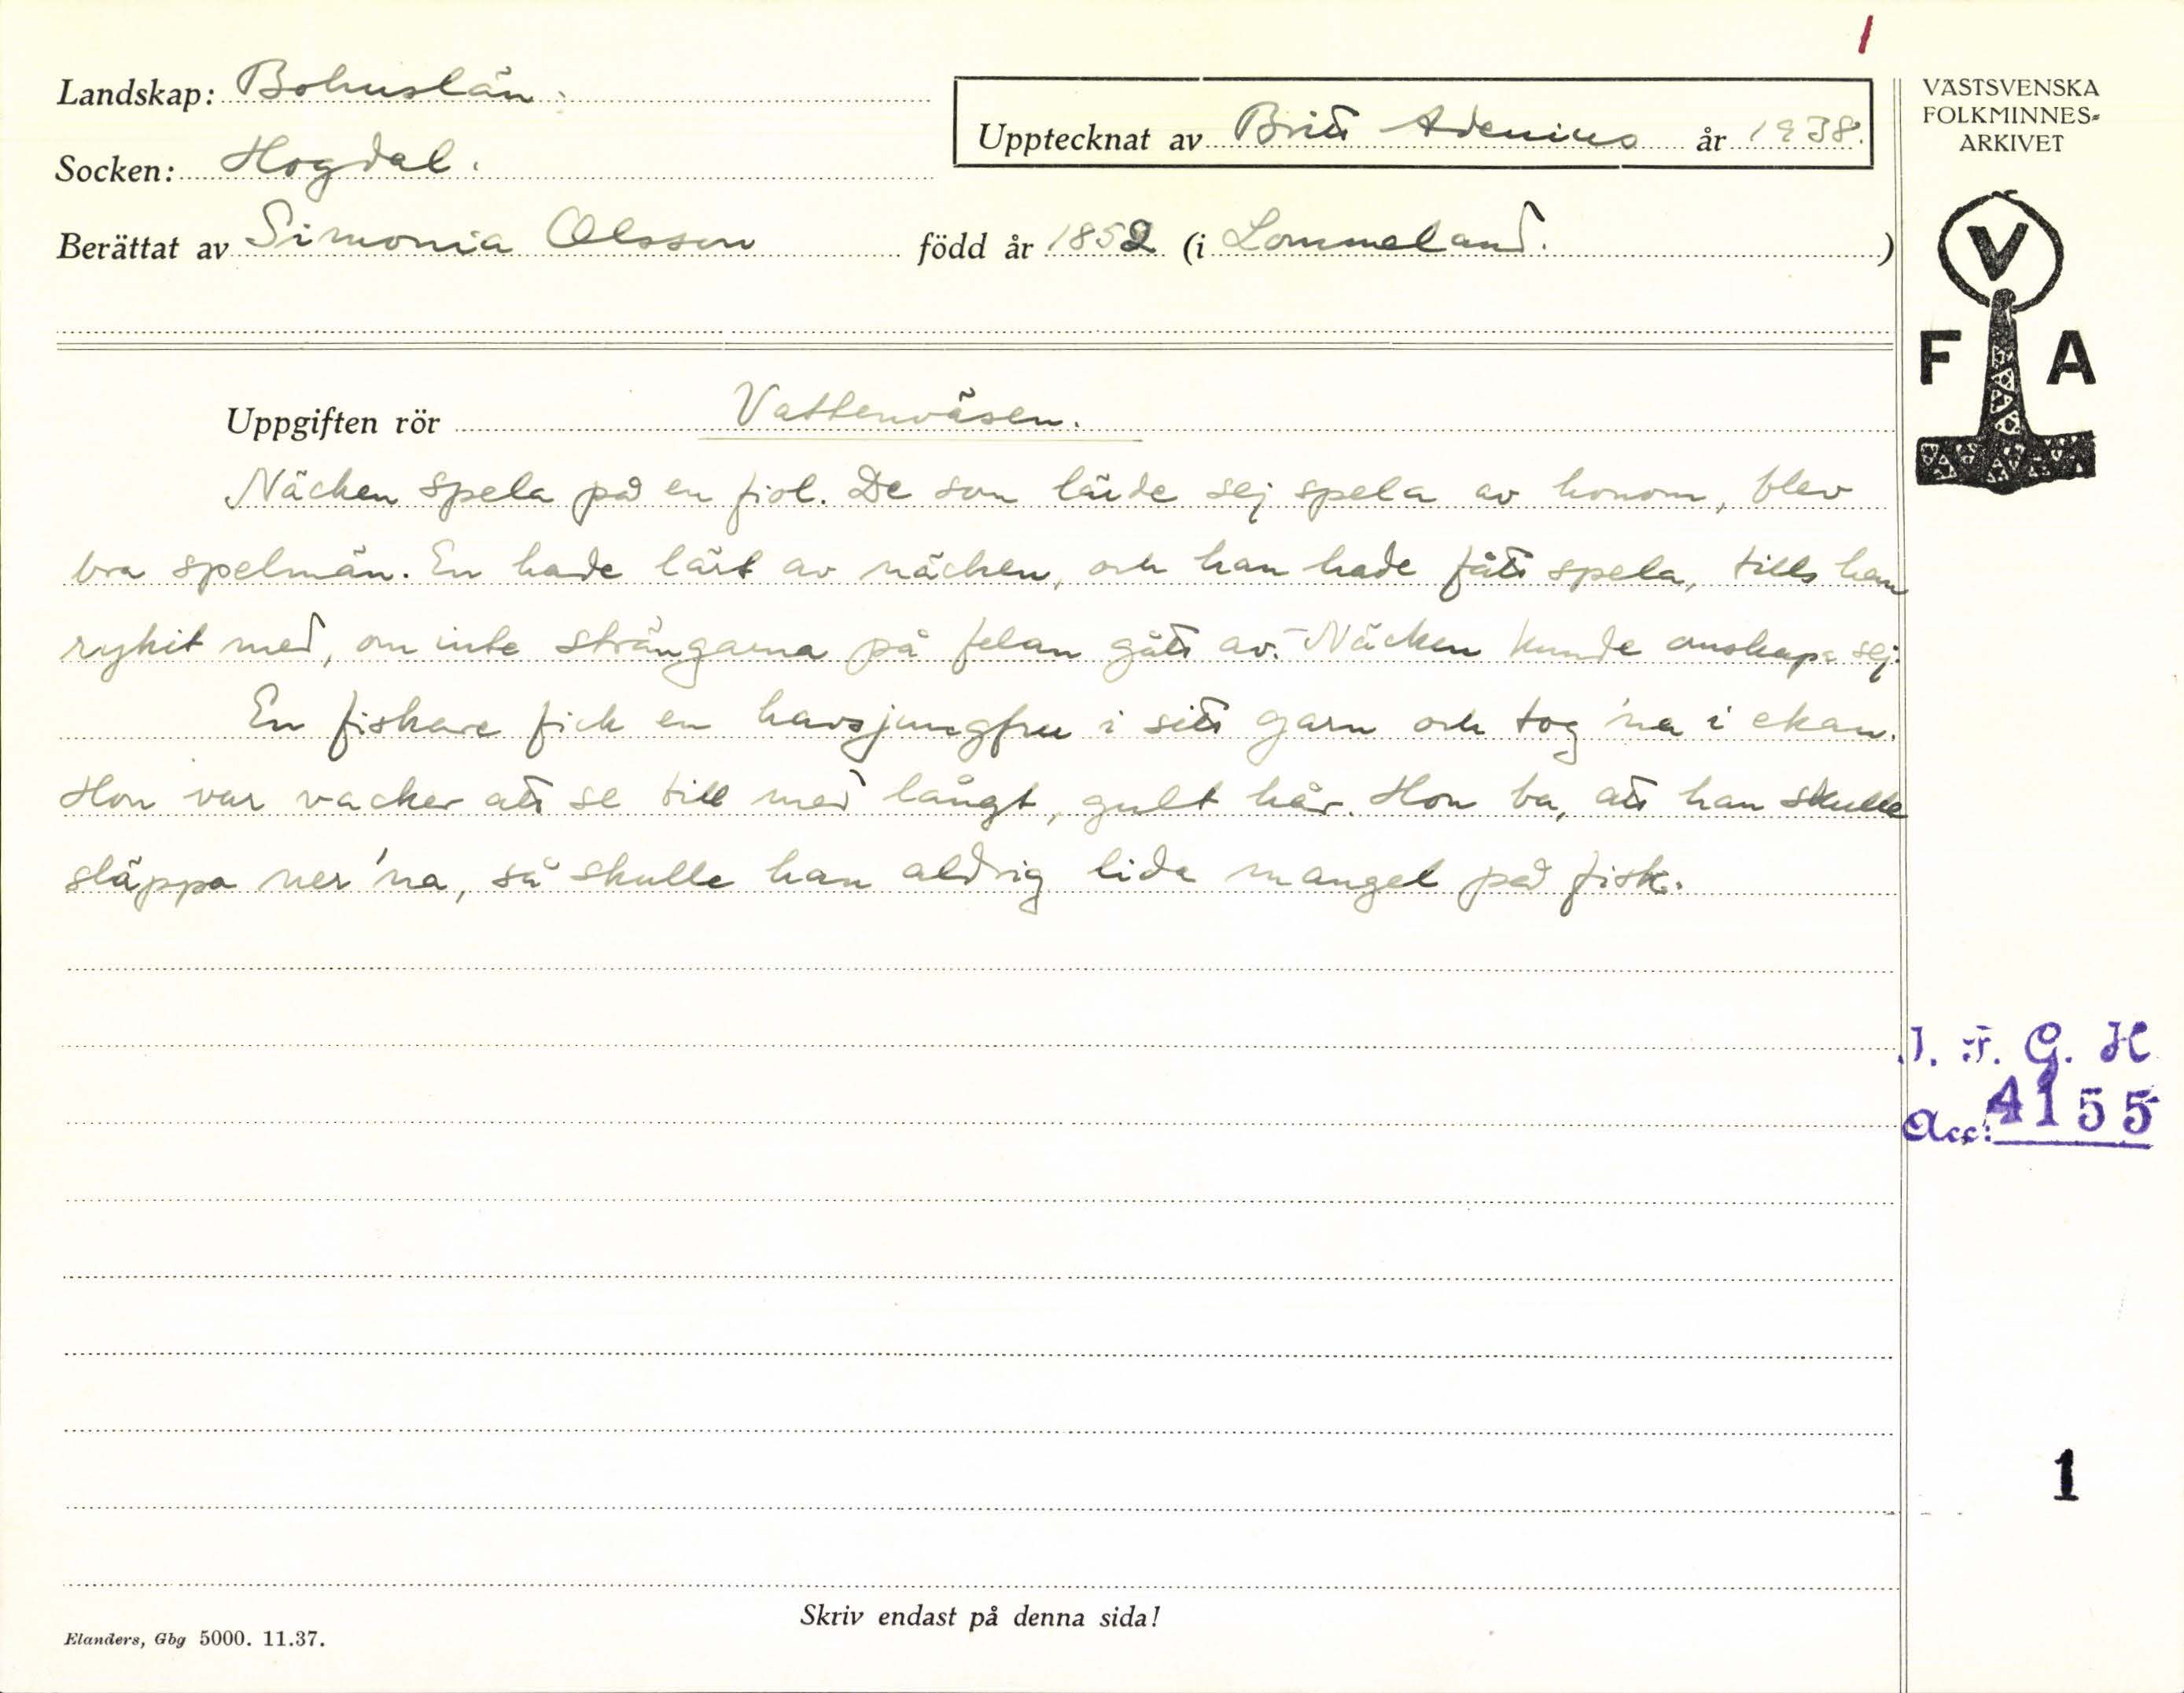 1
Landskap: Bohuslän.
Upptecknat av Britt Adenius år 1938.
Socken: Hogdal.
Berättat av Simonia Olsson född år 1852 (i Lommeland.)
VÄSTSVENSKA
FOLKMINNES-
ARKIVET
V
F A
Uppgiften rör Vattenväsen.
Näcken spela på en fiol. De som lärde sej spela av honom, blev
bra spelmän. En hade lärt av näcken, och han hade fått spela, tills han
rykit med, om inte strängarna på felan gått av. - Näcken kunde omskapa sej.
En fiskare fick en havsjungfru i sitt garn och tog 'na i ekan.
Hon var vacker att se till med långt, gult hår. Hon ba, att han skulle
släppa ner 'na, så skulle han aldrig lida mangel på fisk.
I. F. G. H
Acc: 4155
1
Skriv endast på denna sida!
Elanders, Gbg 5000. 11.37.